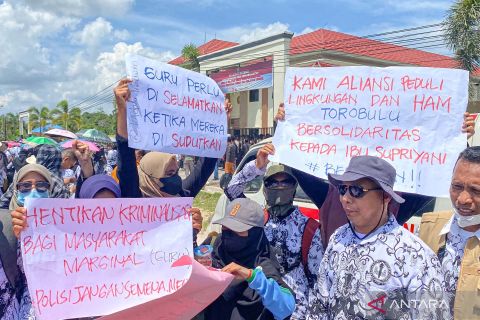 GURU PERLU
DI SELAMATKAN
KETIKA MEREKA
DI SUDUTKAN
KAMI ALIANSI PEDULI
LINGKUNGAN DAN HAM
TOROBULU
BERSOLIDARITAS
KEPADA IBU SUPRIYANI
HENTIKAN KRIMINALISA
BAGI MASYARAKAT
MARGINAL (GURU
POLISI JANGAN SEMENA-ME
ANTARA
ANTARA